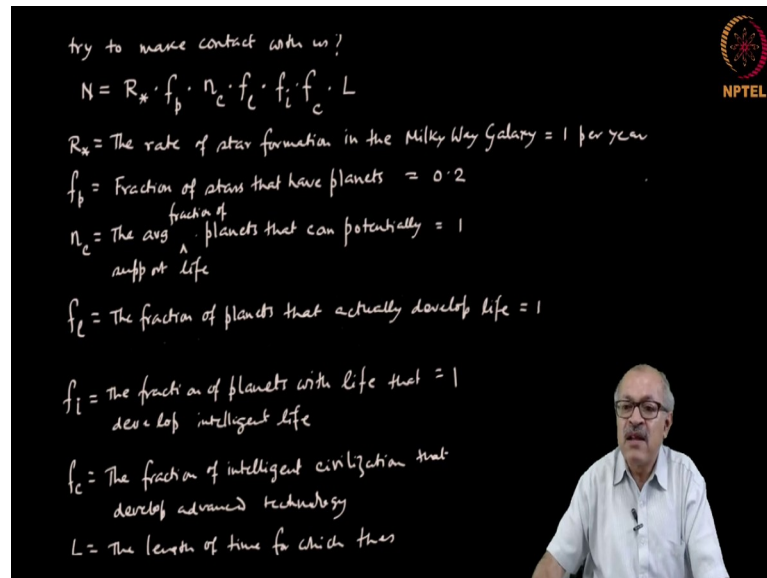 try to make contact with us?
NPTEL
N = R* · fp · nc · fl · fi · fc · L
R* = The rate of star formation in the Milky Way Galaxy = 1 per year
fp = Fraction of stars that have planets = 0.2
fraction of
nc = The avg ^ planets that can potentially = 1
support life
fl = The fraction of planets that actually develop life = 1
fi = The fraction of planets with life that = 1
develop intelligent life
fc = The fraction of intelligent civilization that
develop advanced technology
L = The length of time for which thes